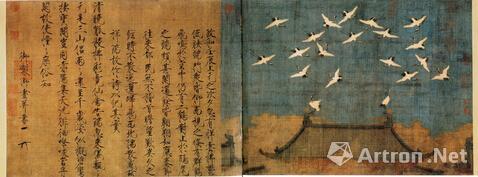 政和壬辰上元之次夕忽有祥雲拂鬱
低映端門衆皆仰而視之倐有群鶴
飛鳴於空中仍有二鶴對止於鴟尾
之端頗甚閑適餘皆翱翔如應奏節
往來都民無不稽首瞻望歎異久之
經時不散迤邐歸飛西北隅散感茲
祥瑞故作詩以紀其實
清曉觚稜拂彩霓仙禽告瑞忽來儀飄飄
元是三山侶兩兩還呈千歲姿似擬碧鸞
棲寶閣豈同赤鴈集天池徘徊嘹唳當丹
闕故使憧憧庶俗知
御製御畫并書
Artron.Net